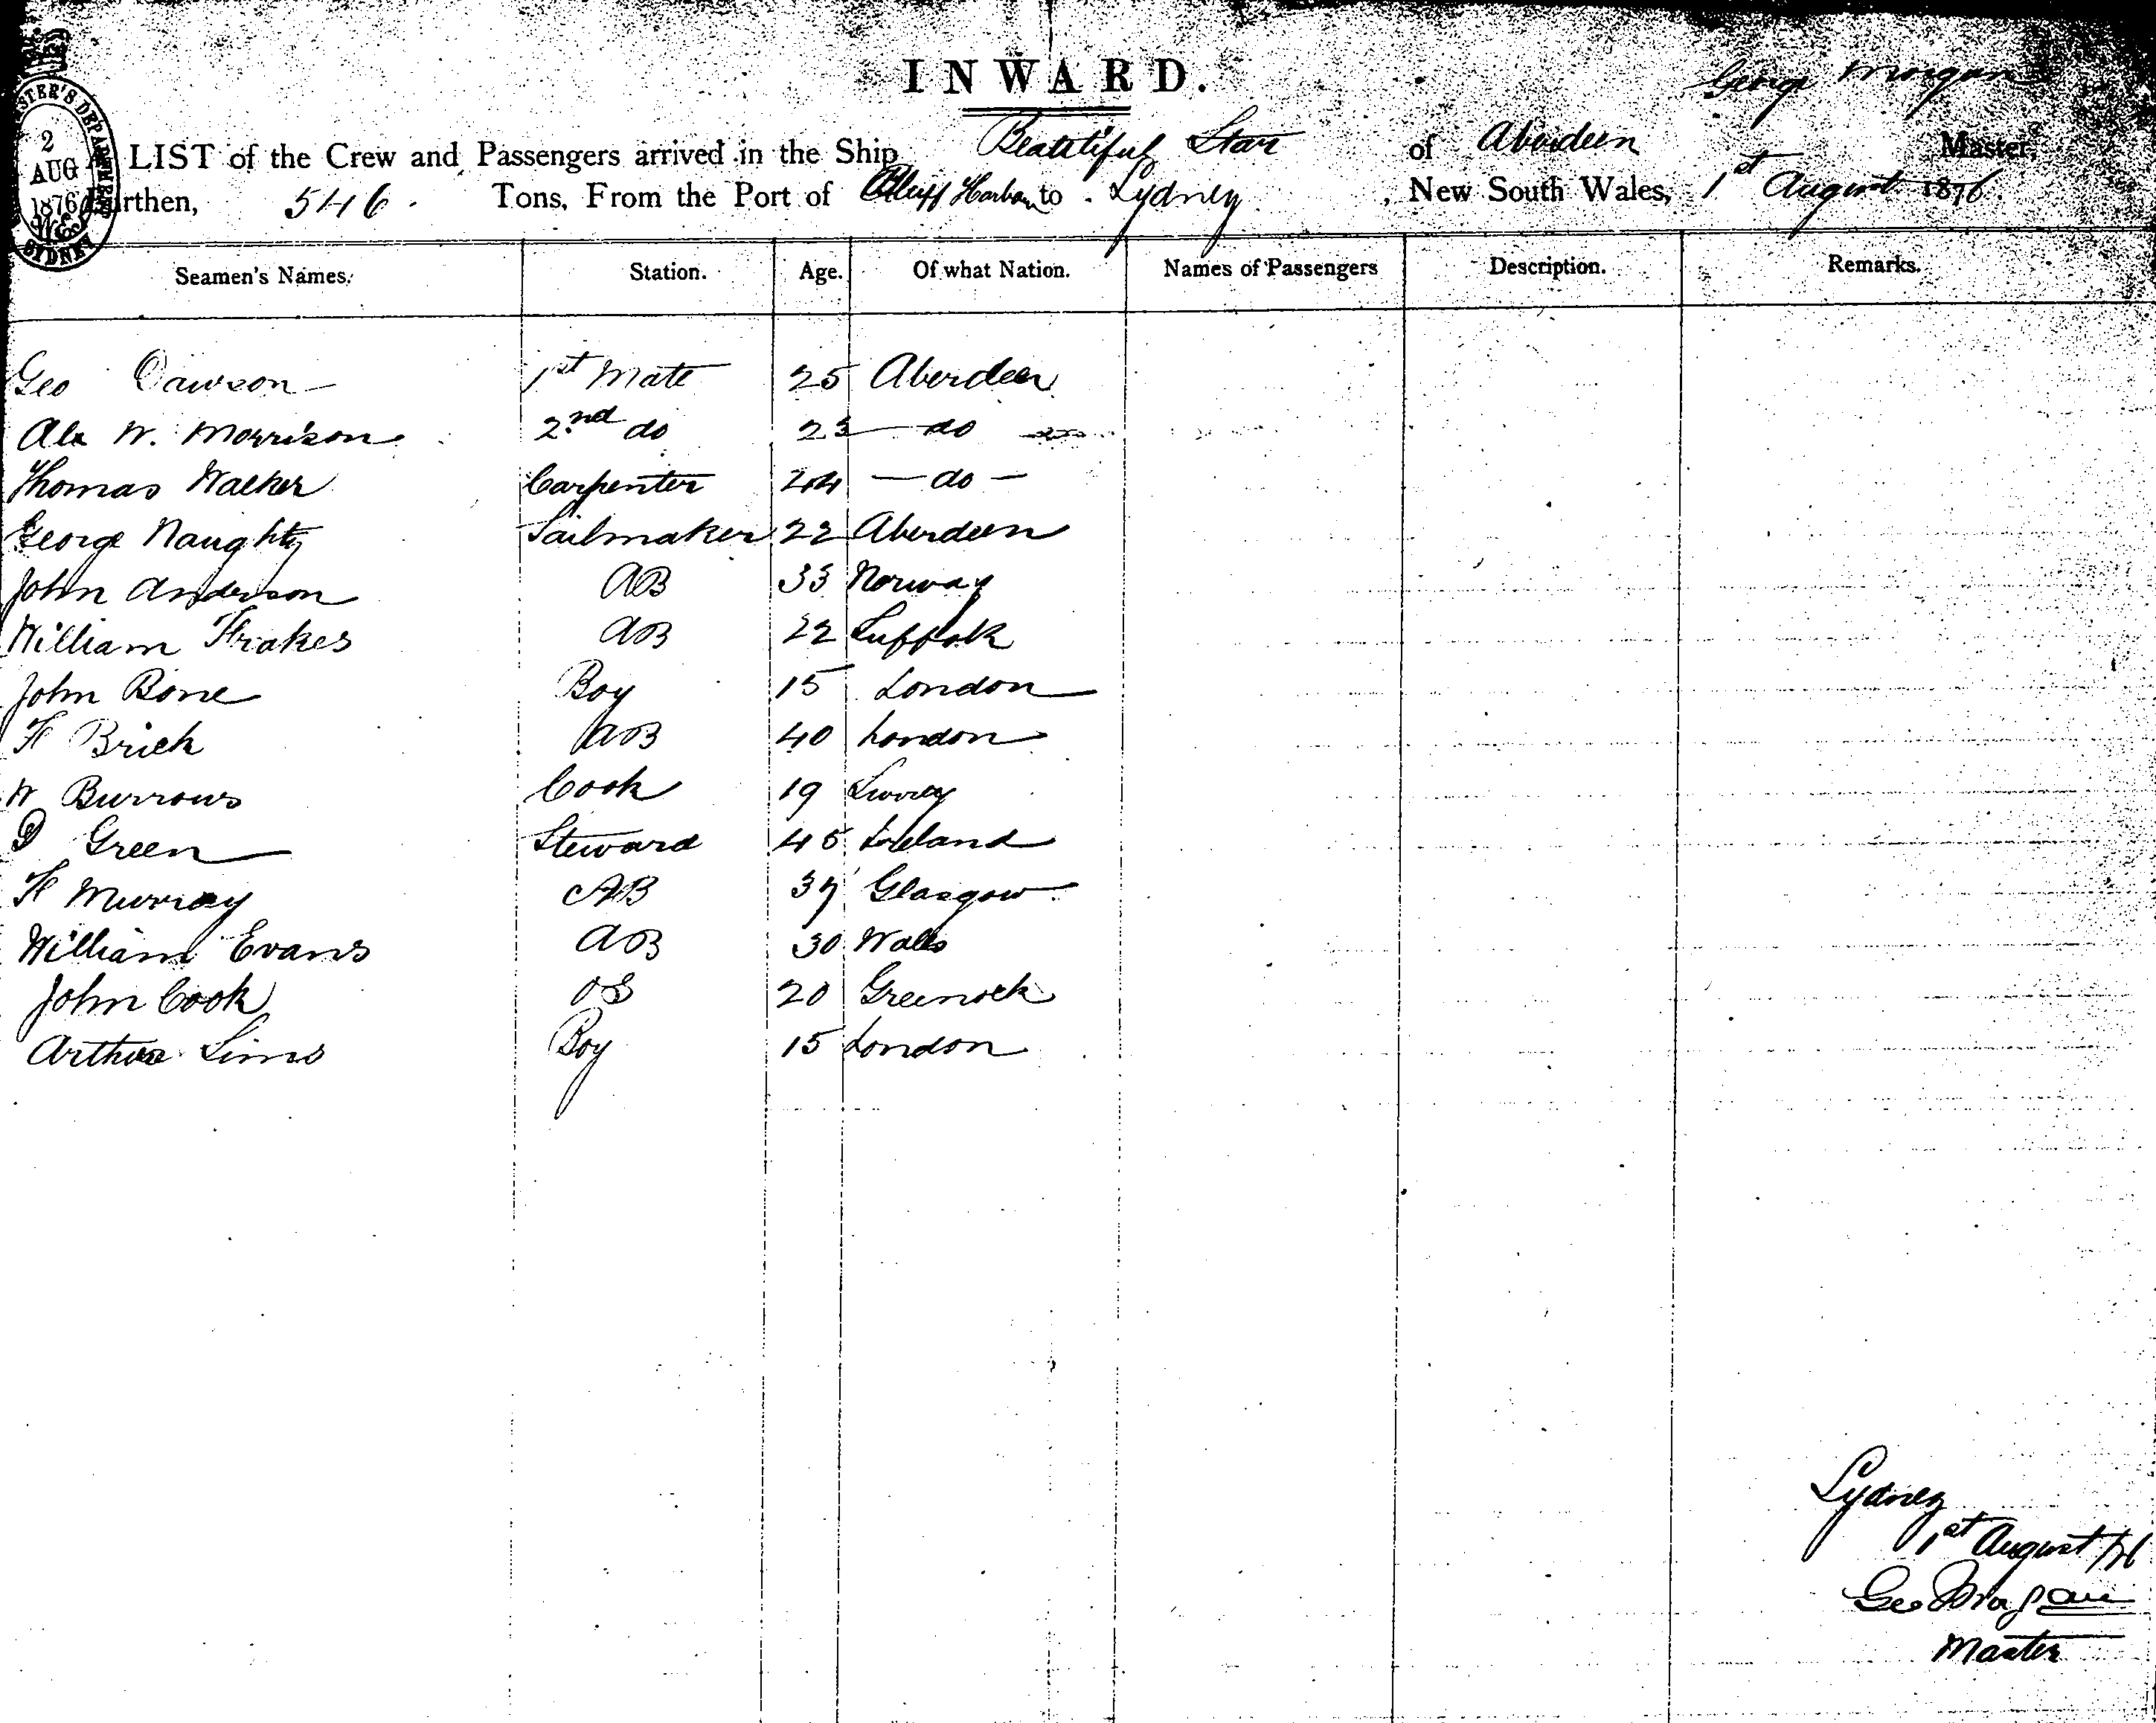 INWARD.
George Morgan
LIST of the Crew and Passengers arrived in the Ship Beautiful Star of Aberdeen Master,
Burthen, 546. Tons, From the Port of Bluff Harbour to Sydney, New South Wales, 1st August 1876.
2
AUG
1876
SYDNEY
Seamen's Names. Station. Age. Of what Nation. Names of Passengers Description. Remarks.
Geo Dawson 1st Mate 25 Aberdeen
Alex W. Morrison 2nd do 23 do
Thomas Walker Carpenter 24 — do —
George Naughty Sailmaker 22 Aberdeen
John Anderson AB 33 Norway
William Frakes AB 22 Suffolk
John Bone Boy 15 London
F Brick AB 40 London
W Burrows Cook 19 Surrey
D Green Steward 45 Ireland
F Murray AB 37 Glasgow
William Evans AB 30 Wales
John Cook OS 20 Greenock
Arthur Sims Boy 15 London
Sydney
1st August /76
Geo Morgan
Master